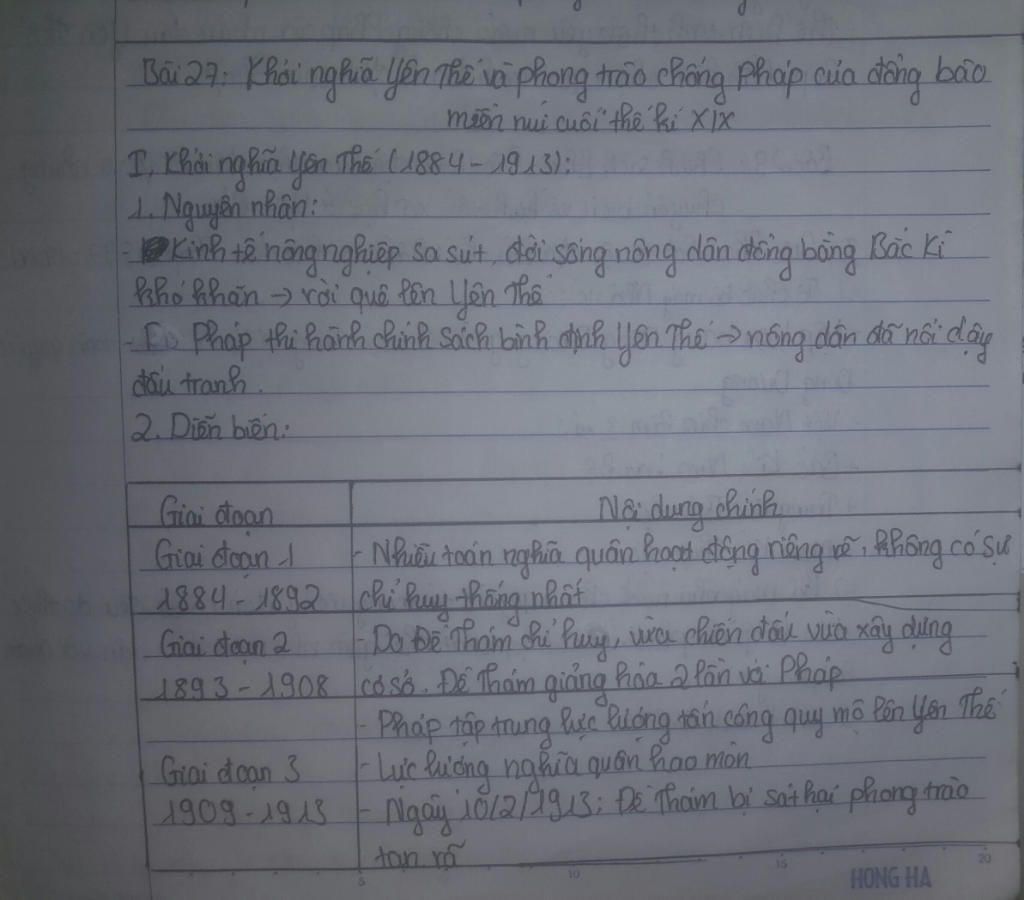 Bài 27: Khởi nghĩa Yên Thế và phong trào chống Pháp của đồng bào
miền núi cuối thế kỉ XIX
I, Khởi nghĩa Yên Thế (1884 - 1913):
1. Nguyên nhân:
- Kinh tế nông nghiệp sa sút, đời sống nông dân đồng bằng Bắc Kì
khó khăn → rời quê lên Yên Thế
- Pháp thi hành chính sách bình định Yên Thế → nông dân đã nổi dậy
đấu tranh.
2. Diễn biến:
Giai đoạn
Nội dung chính
Giai đoạn 1
1884 - 1892
- Nhiều toán nghĩa quân hoạt động riêng rẽ, không có sự
chỉ huy thống nhất
Giai đoạn 2
1893 - 1908
- Do Đề Thám chỉ huy, vừa chiến đấu vừa xây dựng
cơ sở. Đề Thám giảng hòa 2 lần với Pháp
Giai đoạn 3
1909 - 1913
- Pháp tập trung lực lượng tấn công quy mô lên Yên Thế
- Lực lượng nghĩa quân hao mòn
- Ngày 10/2/1913: Đề Thám bị sát hại phong trào
tan rã
5 10 15 20
HONG HA